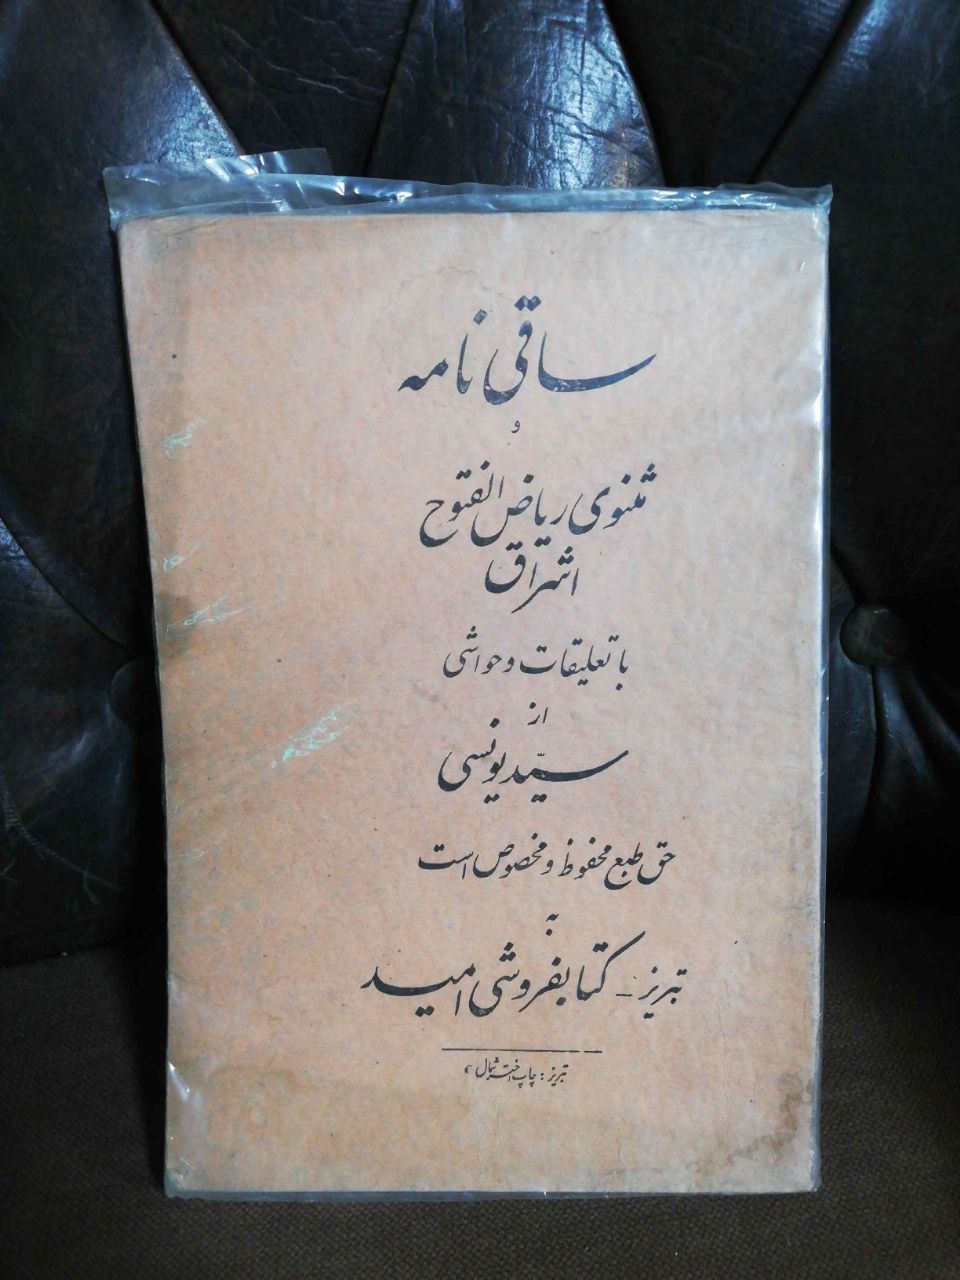 ساقی نامه
و
مثنوی ریاض الفتوح
اشراق
با تعلیقات و حواشی
از
سیّد یونسی
حق طبع محفوظ و مخصوص است
به
تبریز - کتابفروشی امید
تبریز : چاپ اختر شمال